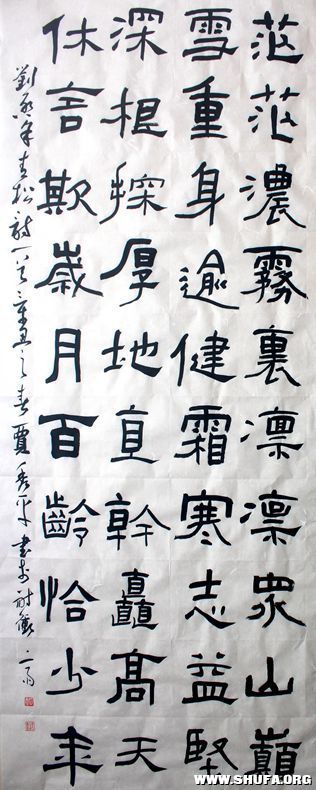 茫茫濃霧裏凜凜眾山巔
雪重身逾健霜寒志益堅
深根探厚地直幹矗高天
休言欺歲月百齡恰少年
劉年青松詩一之春賈秀書於耐
WWW.SHUFA.ORG